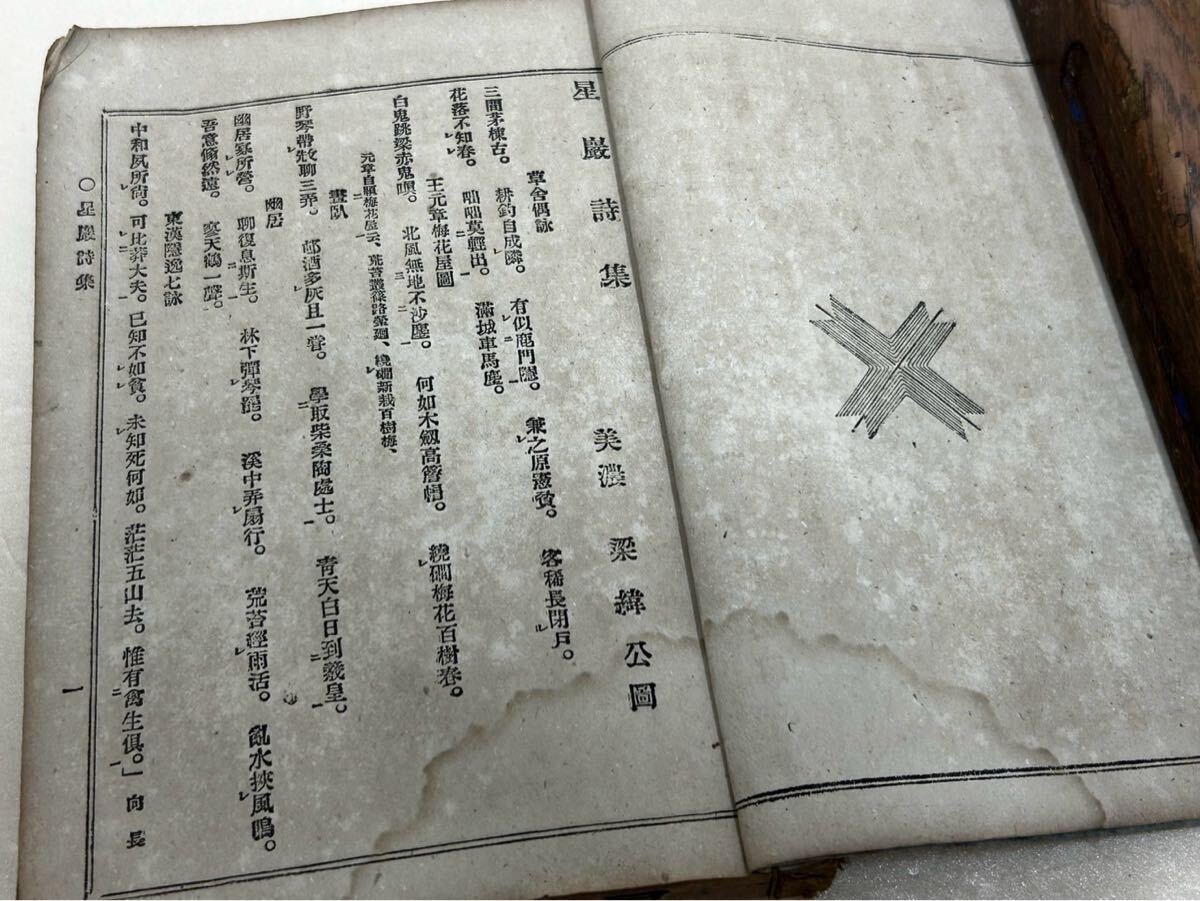 星巖詩集 美濃 梁緯公圖
草舍偶詠
三間茅棟古。耕釣自成隣。有似龐門隱。兼之原憲貧。客稀長閉戸。
花落不知春。咄咄莫輕出。滿城車馬塵。
王元章梅花屋圖
白鬼跳梁赤鬼嗔。北風無地不沙塵。何如木劔高簷帽。繞磵梅花百樹春。
元章自題梅花屋云、荒苔叢篠路縈廻、繞磵新栽百樹梅、
晝臥
野琴帶殼聊三弄。邨酒多灰且一甞。學取柴桑陶處士。青天白日到羲皇。
幽居
幽居寡所營。聊復息斯生。林下彈琴罷。溪中弄扇行。荒苔經雨活。亂水挾風鳴。
吾意翛然遠。寥天鶴一聲。
東漢隱逸七詠
中和夙所尙。可比莽大夫。已知不如貧。未知死何如。茫茫五山去。惟有禽生俱。」向長
〇星巖詩集 一